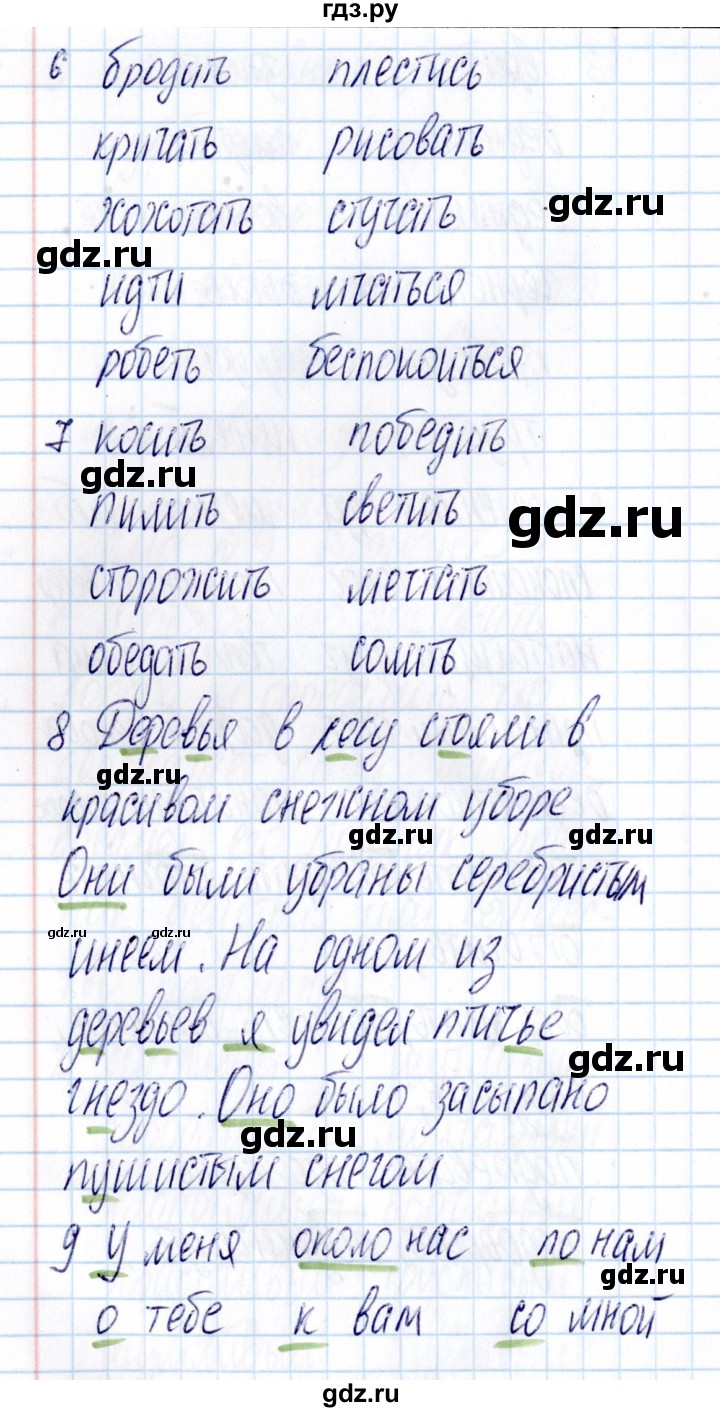 гдз.ру
6 бродить плестись
кричать рисовать
gdz.ru
хохотать стучать
gdz.ru
идти мчаться
робеть беспокоиться
7 косить победить
gdz.ru
пилить светить
gdz.ru
сторожить мечтать
обедать солить
8 Деревья в лесу стояли в
gdz.ru
красивом снежном уборе
gdz.ru gdz.ru
Они были убраны серебристым
gdz.ru gdz.ru
инеем. На одном из
деревьев я увидел птичье
gdz.ru
гнездо. Оно было засыпано
gdz.ru
пушистым снегом
9 у меня около нас по нам
gdz.ru
о тебе к вам со мной
gdz.ru